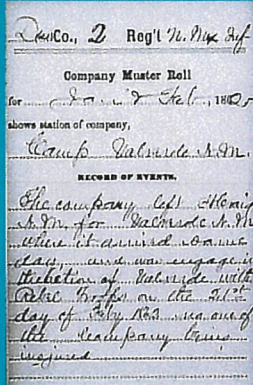 Co., 2 Reg't N. Mex Inf
Company Muster Roll
for Jan & Feb, 186
shows station of company,
Camp Valverde N.M.
RECORD OF EVENTS.
The company left
N.M. for Valverde N.M
where it arrived same
day, and was engage in
the of Valverde with
troops on the 21st
day of Feby no one of
the Company being
injured